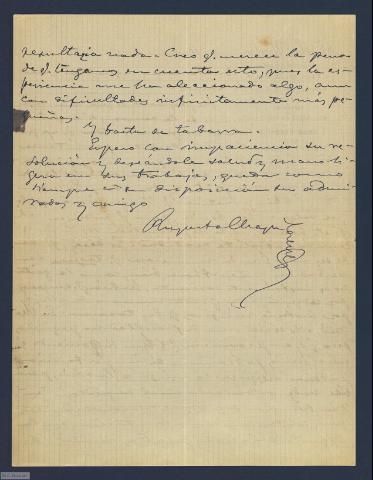 resultaría nada. Creo q. merece la pena
de q. tengamos en cuenta esto, pues la ex-
periencia me ha aleccionado algo, aun
con dificultades infinitamente más pe-
queñas.
Y basta de tabarra.
Espero con impaciencia su re-
solución y deseándole salud y mano li-
gera en sus trabajos, queda como
siempre a su disposición su admi-
rador y amigo
Augusto